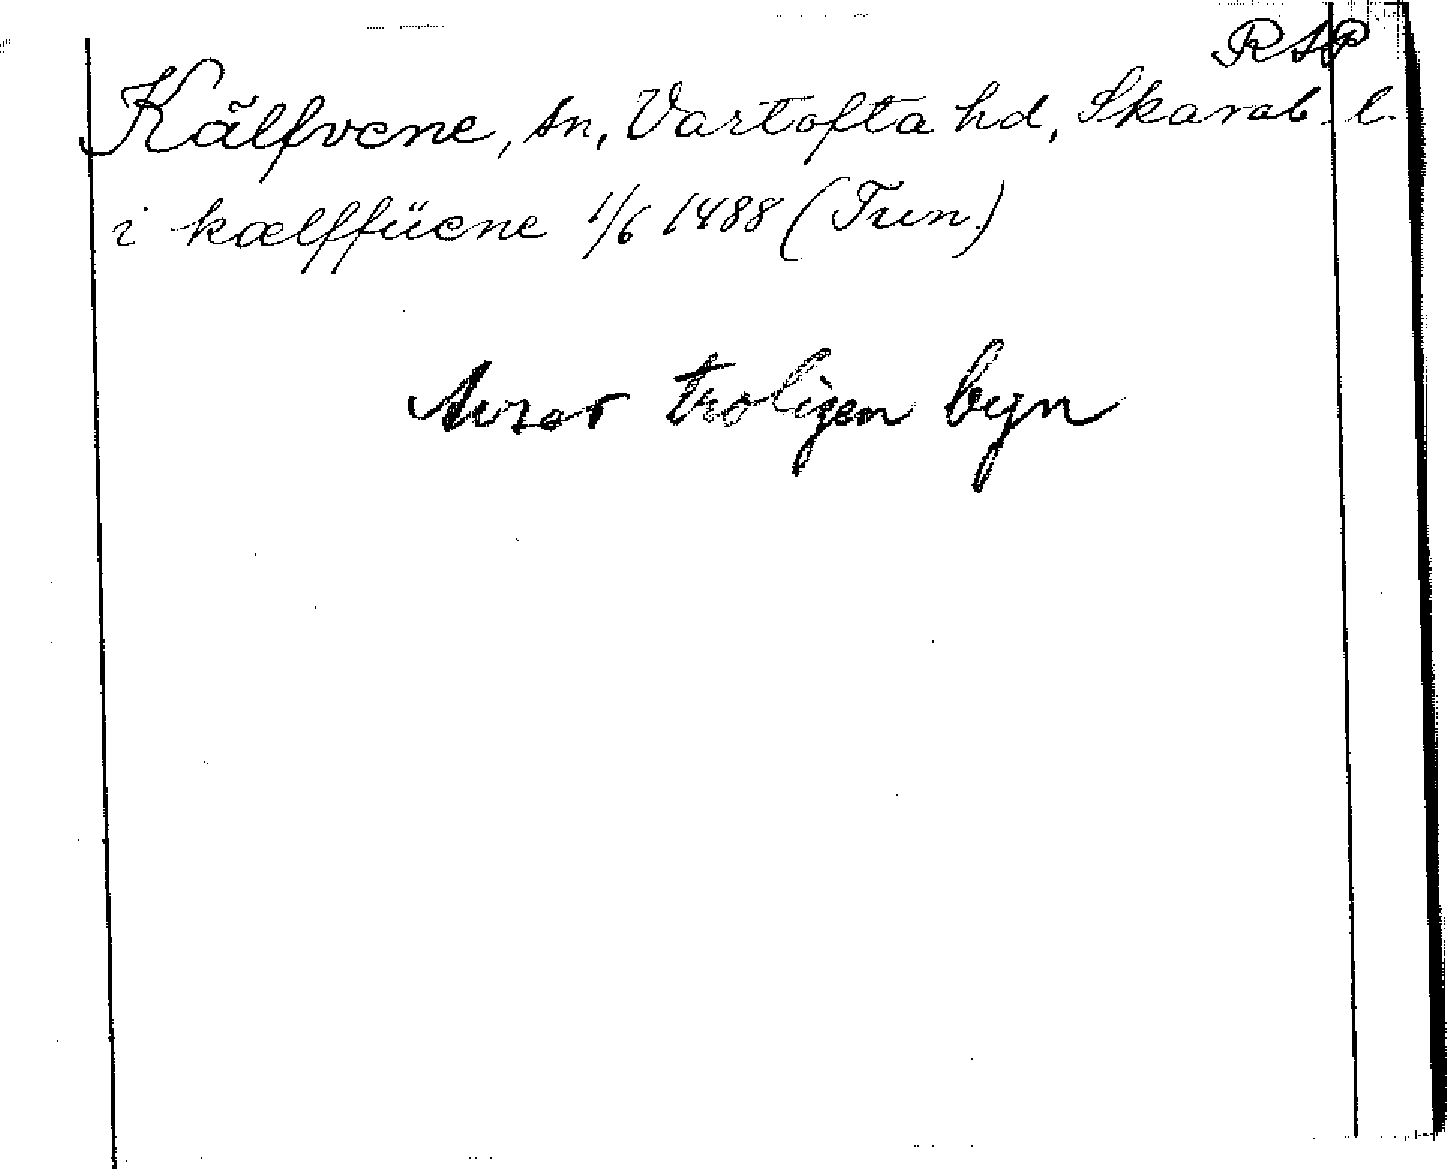 RAP
Kälfvene, sn, Vartofta hd, Skarab. l.
i kælffüene 1/6 1488 (Tun.)
Avser troligen byn